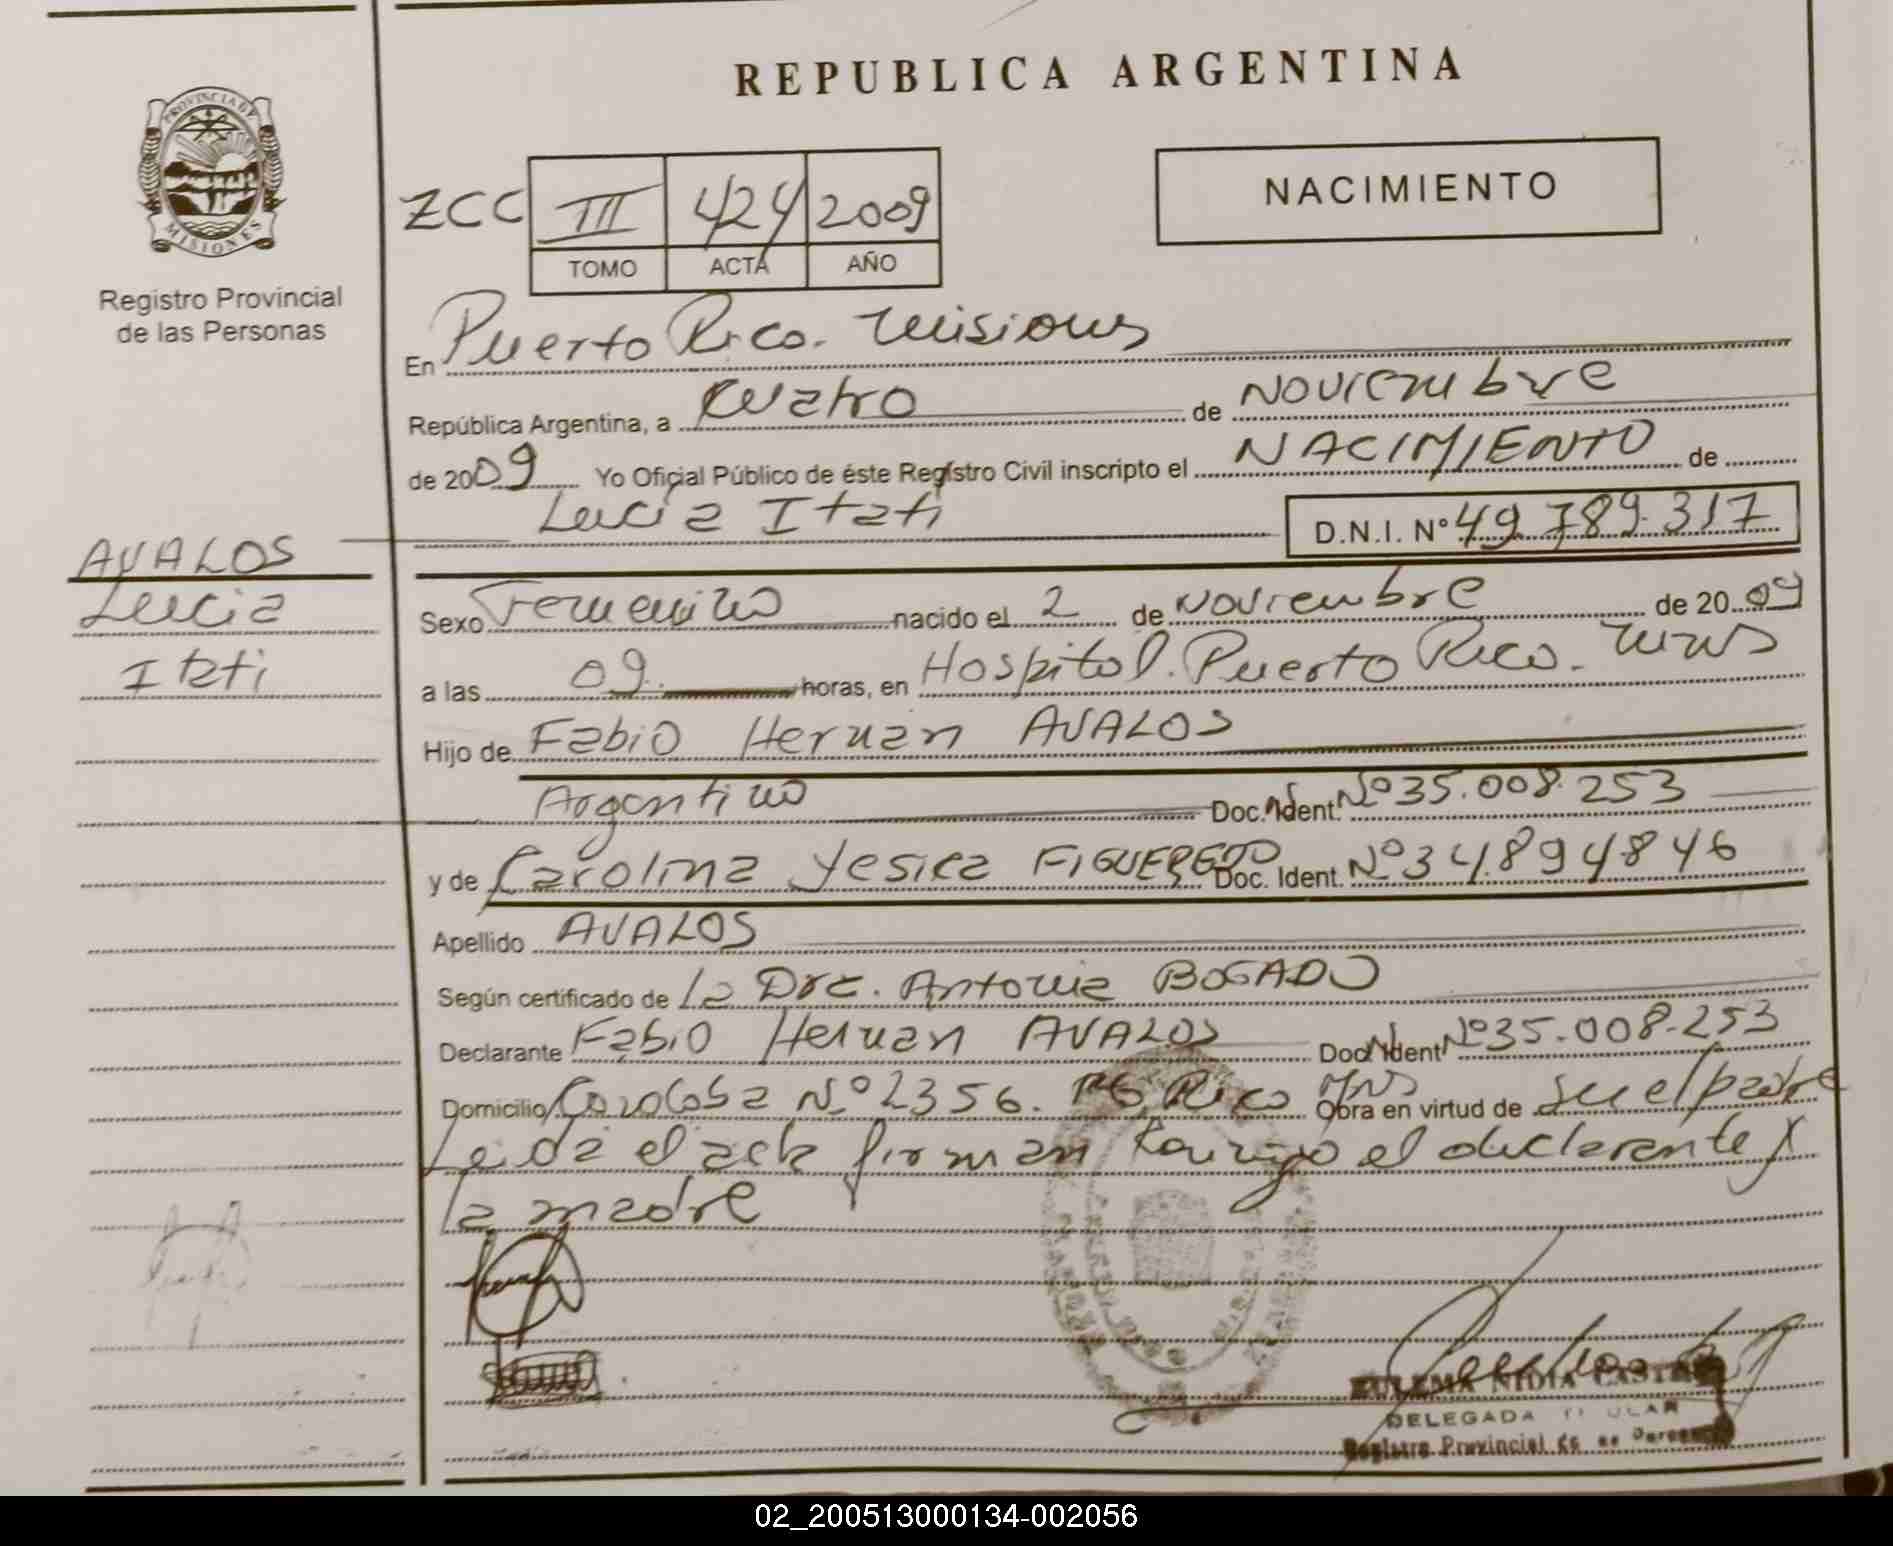 REPUBLICA ARGENTINA
PROVINCIA DE
MISIONES
Registro Provincial
de las Personas
NACIMIENTO
ZCC III 424 2009
TOMO ACTA AÑO
En Puerto Rico. Misiones
República Argentina, a Cuatro de Noviembre
de 2009 Yo Oficial Público de éste Registro Civil inscripto el NACIMIENTO de
Lucia Itati D.N.I. Nº 49.789.317
AVALOS
Lucia
Itati
Sexo Femenino nacido el 2 de Noviembre de 2009
a las 09. horas, en Hospital. Puerto Rico. Mnes
Hijo de Fabio Hernan AVALOS
Argentino Doc. Ident. Nº 35.008.253
y de Carolina Yesica FIGUEREDO Doc. Ident. Nº 34.894846
Apellido AVALOS
Según certificado de la Dra. Antonia BOGADO
Declarante Fabio Hernan AVALOS Doc. Ident Nº 35.008.253
Domicilio Cordoba Nº 2356. Pto Rico Mns Obra en virtud de Su el padre
Leida el acta firman conmigo el declarante y
la madre
ZULEMA NIDIA
DELEGADA TITULAR
Registro Provincial de las Personas
02_200513000134-002056